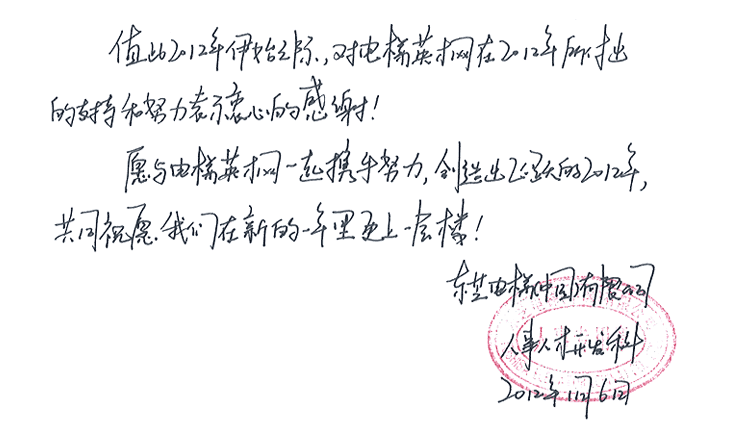 值此2012年伊始之际,对电梯英才网在2012年所付出
的支持和努力表示衷心的感谢!
愿与电梯英才网一起携手努力,创造出飞跃的2012年,
共同祝愿我们在新的一年里更上一层楼!
东芝电梯(中国)有限公司
人事人才开发科
2012年1月6日